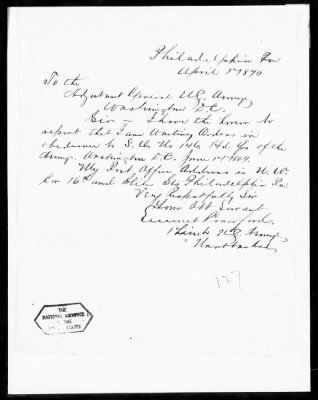 Philadelphia Pa
April 1st 1870
To the
Adjutant General U.S. Army
Washington D.C.
Sir – I have the honor to
report that I am Waiting Orders in
obedience to S.O. No 146 Hd Qrs of the
Army. Washington D.C. June 1869.
My Post Office Address is N.W.
Cor 16th and Sts Philadelphia Pa.
Very Respectfully Sir
Your Obt Servant
Emmet Crawford
1 Lieut U.S. Army
Unattached
127
THE
NATIONAL ARCHIVES
OF THE
UNITED STATES